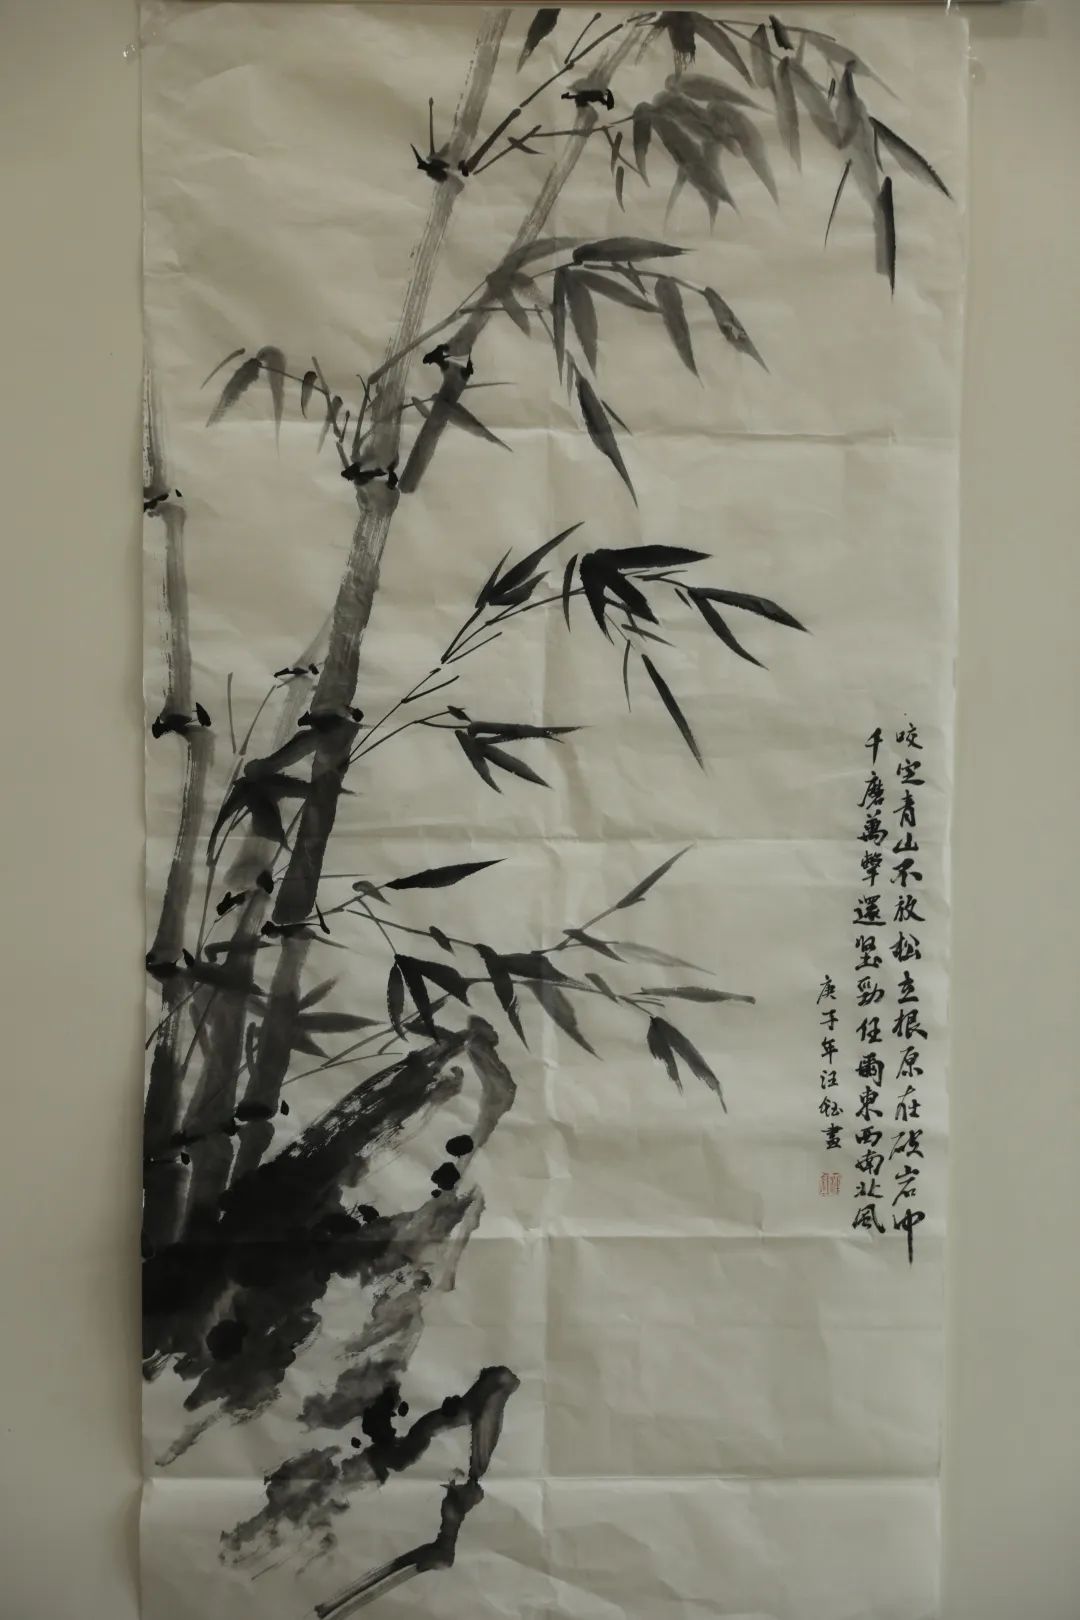 咬定青山不放松立根原在破岩中
千磨萬擊還坚勁任爾東西南北風
庚子年汪钰畫